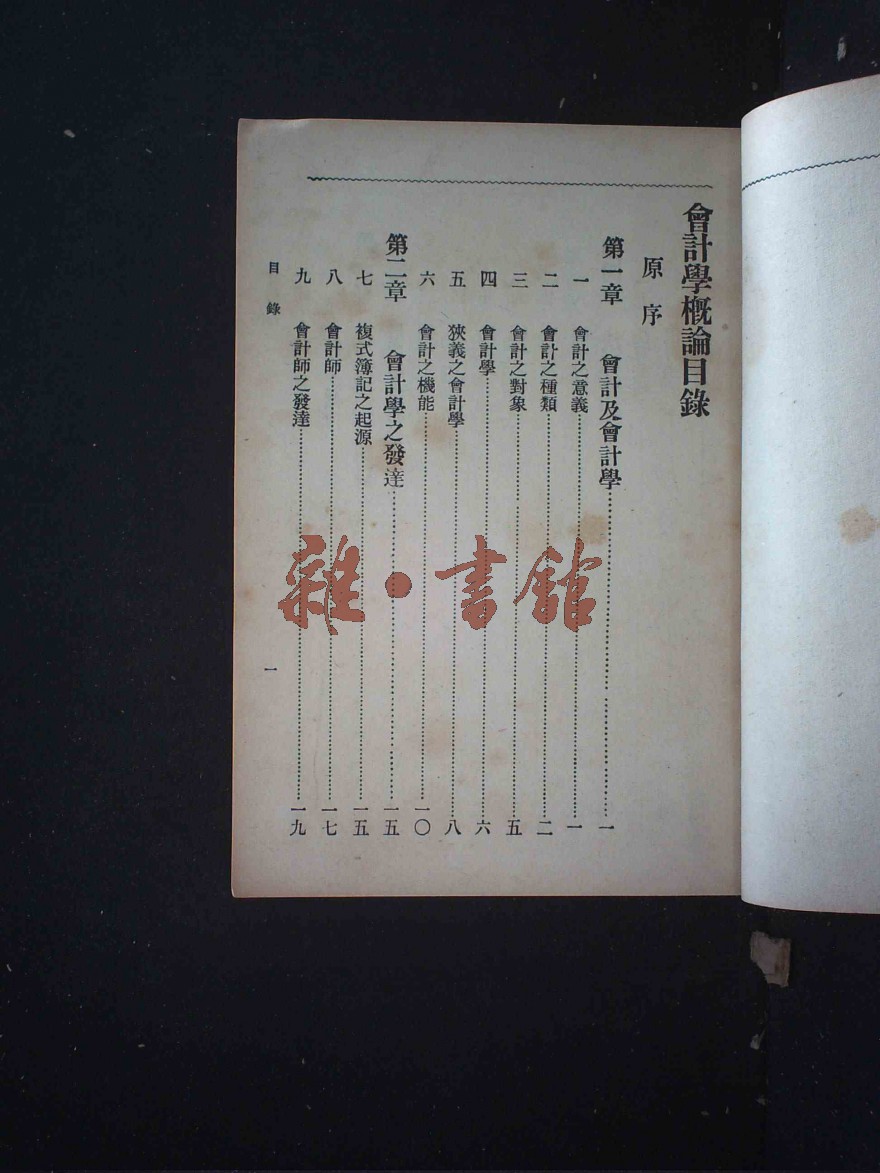 會計學概論目錄
原序
第一章 會計及會計學……一
一 會計之意義……一
二 會計之種類……二
三 會計之對象……五
四 會計學……六
五 狹義之會計學……八
六 會計之機能……一〇
第二章 會計學之發達……一五
七 複式簿記之起源……一五
八 會計師……一七
九 會計師之發達……一九
目錄 一
雜·書館